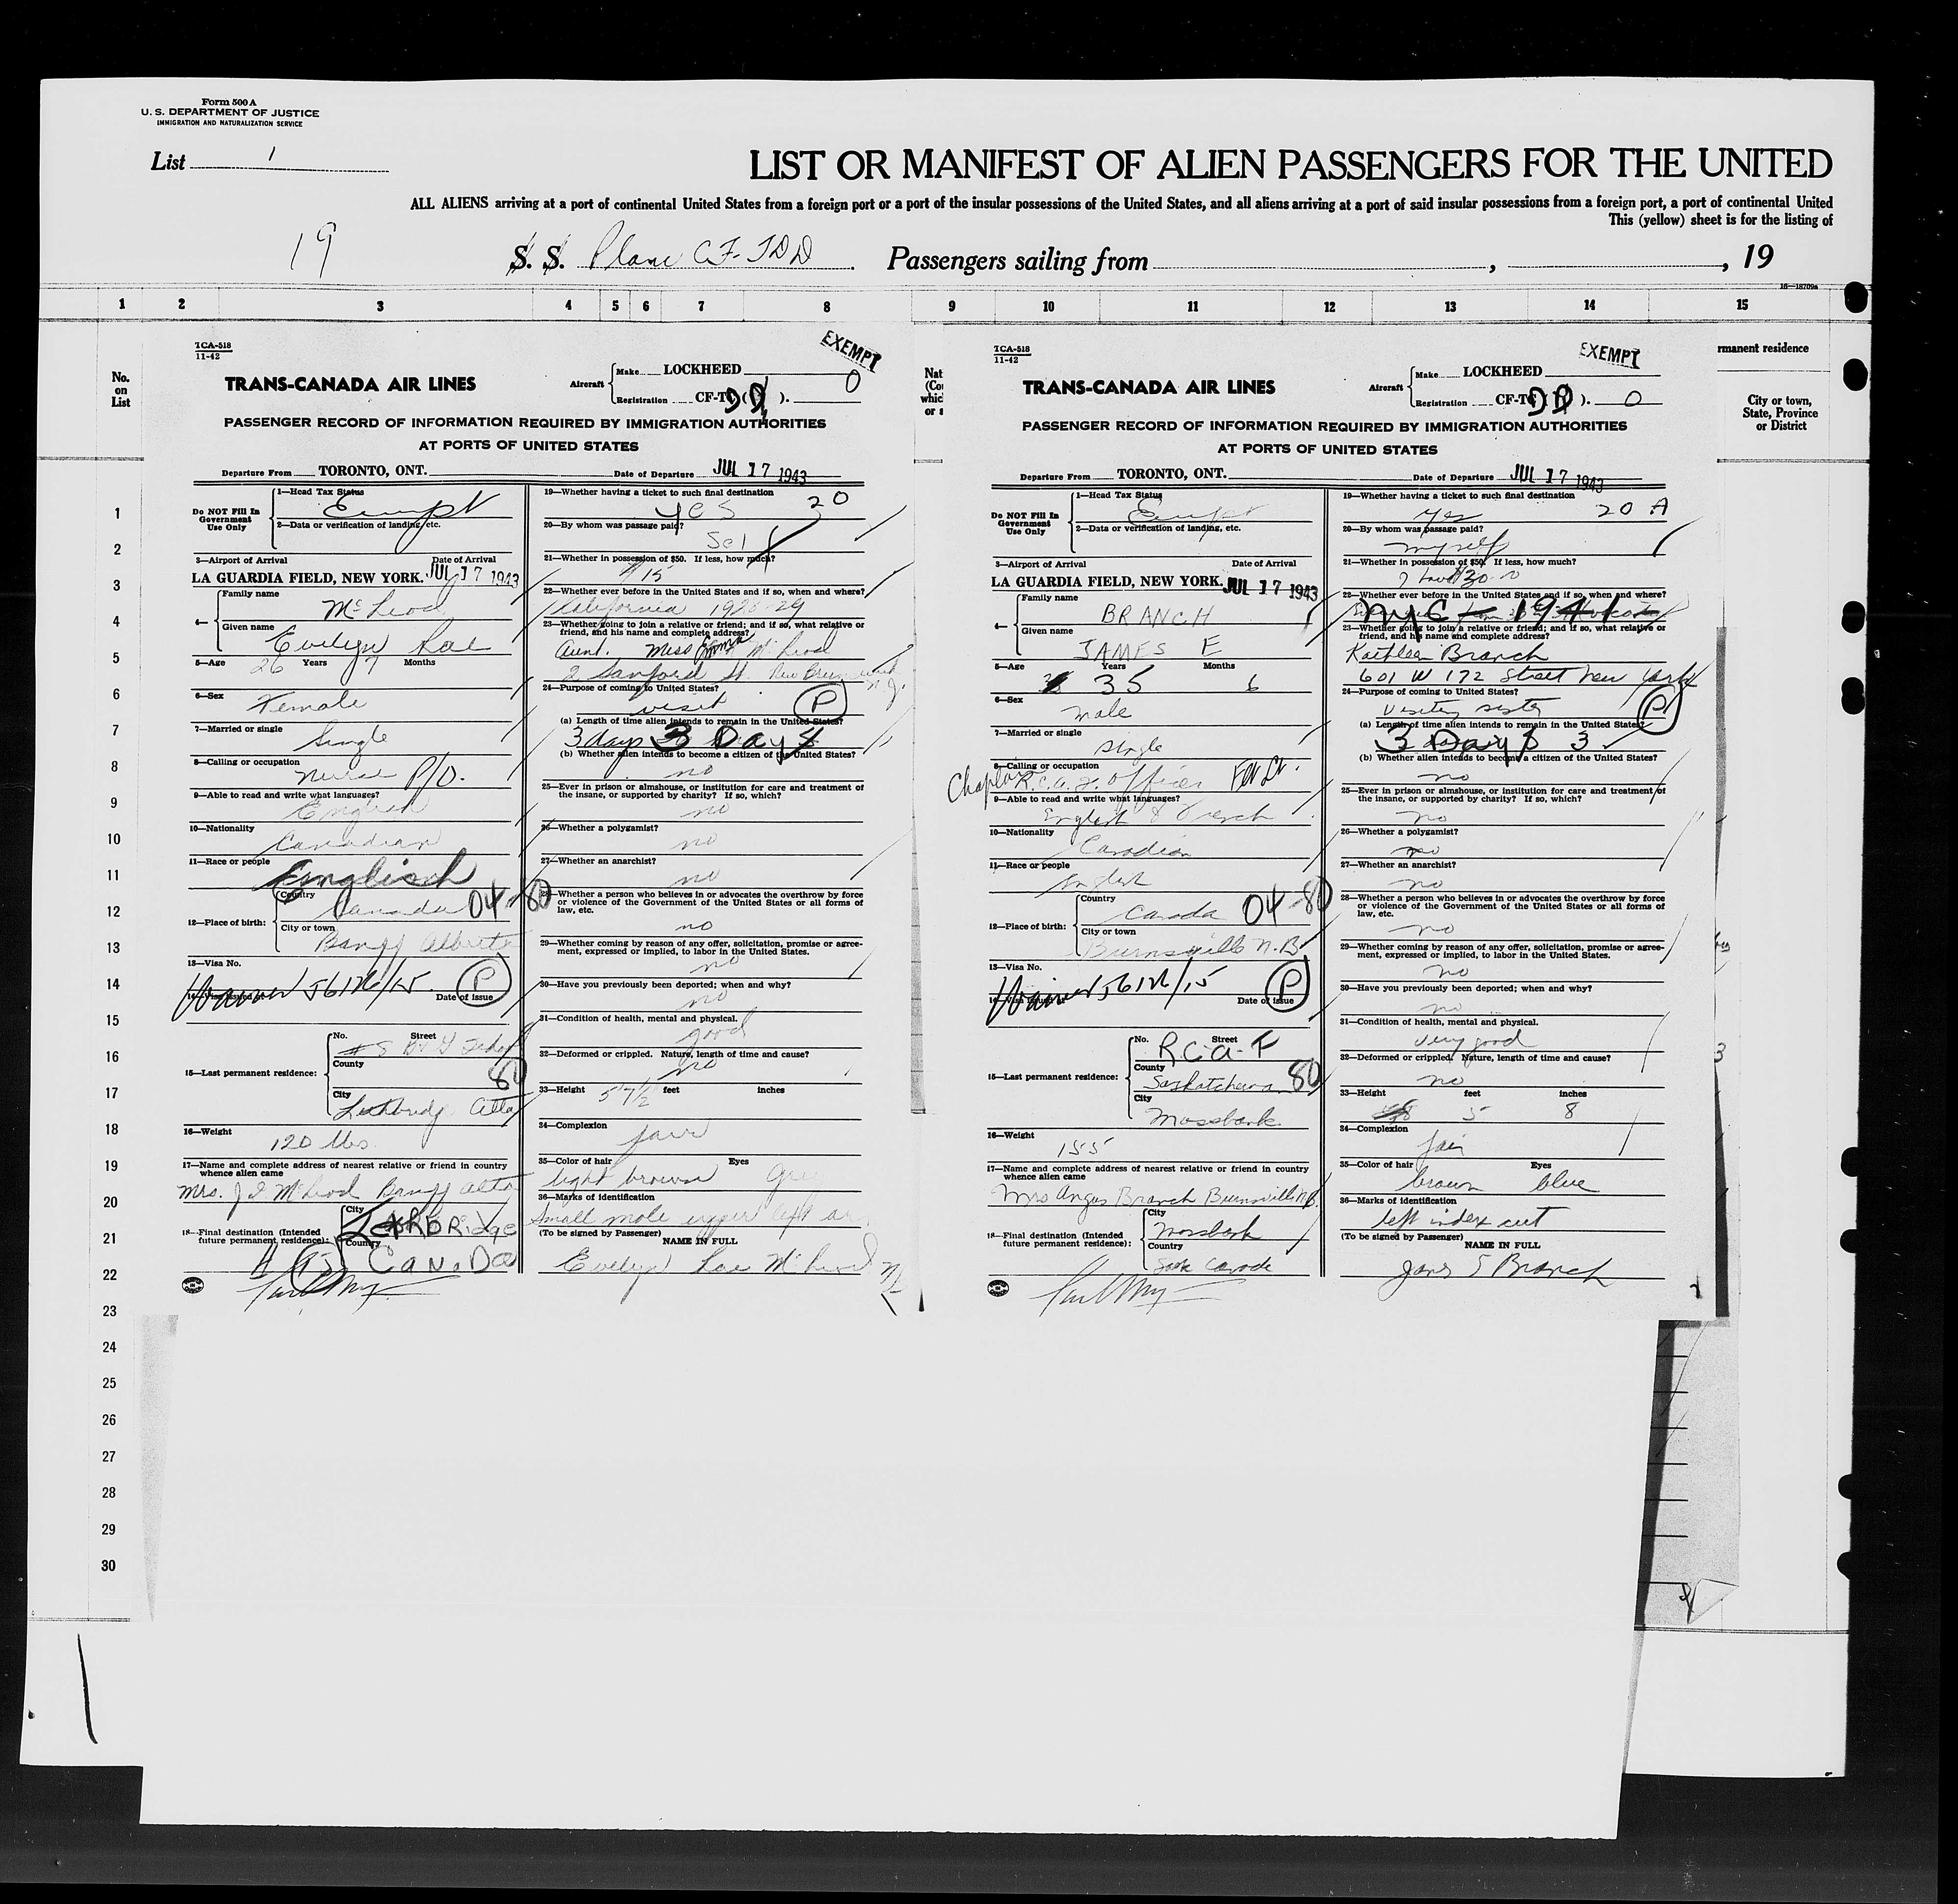 Form 500 A
U. S. DEPARTMENT OF JUSTICE
IMMIGRATION AND NATURALIZATION SERVICE
List 1
LIST OR MANIFEST OF ALIEN PASSENGERS FOR THE UNITED
ALL ALIENS arriving at a port of continental United States from a foreign port or a port of the insular possessions of the United States, and all aliens arriving at a port of said insular possessions from a foreign port, a port of continental United
This (yellow) sheet is for the listing of
19 S. S. Plane CF-TDD Passengers sailing from , , 19
16—18709a
1 2 3 4 5 6 7 8 9 10 11 12 13 14 15
No.
on
List
1
2
3
4
5
6
7
8
9
10
11
12
13
14
15
16
17
18
19
20
21
22
23
24
25
26
27
28
29
30
TCA-518
11-42
EXEMPT
TRANS-CANADA AIR LINES
Aircraft
Make LOCKHEED
Registration CF-T DD ( ). 0
PASSENGER RECORD OF INFORMATION REQUIRED BY IMMIGRATION AUTHORITIES
AT PORTS OF UNITED STATES
Departure From TORONTO, ONT. Date of Departure JUL 17 1943
Do NOT Fill In
Government
Use Only
1—Head Tax Status
Exempt
2—Data or verification of landing, etc.
3—Airport of Arrival Date of Arrival
LA GUARDIA FIELD, NEW YORK. JUL 17 1943
4— Family name
McLeod
Given name
Evelyn Rae
5—Age 26 Years 7 Months
6—Sex
Female
7—Married or single
Single
8—Calling or occupation
Nurse P/O.
9—Able to read and write what languages?
English
10—Nationality
Canadian
11—Race or people
English
12—Place of birth:
Country
Canada 04-80
City or town
Banff Alberta
13—Visa No.
Waiver 5612b/15. P
14—Visa issued at Date of issue
15—Last permanent residence:
No. Street
# 8
County
80
City
Lethbridge Alta
16—Weight
120 lbs.
17—Name and complete address of nearest relative or friend in country
whence alien came
Mrs. J D McLeod Banff Alta
18—Final destination (Intended
future permanent residence):
City
LethBRidge
Country
CANADA
19—Whether having a ticket to such final destination
yes 20
20—By whom was passage paid?
Self
21—Whether in possession of $50. If less, how much?
$15
22—Whether ever before in the United States and if so, when and where?
California 1928-29
23—Whether going to join a relative or friend; and if so, what relative or
friend, and his name and complete address?
Aunt. Miss Emma McLeod
2 Sanford St. New Brunswick N.J.
24—Purpose of coming to United States?
visit P
(a) Length of time alien intends to remain in the United States?
3 days 3 Days
(b) Whether alien intends to become a citizen of the United States?
no
25—Ever in prison or almshouse, or institution for care and treatment of
the insane, or supported by charity? If so, which?
no
26—Whether a polygamist?
no
27—Whether an anarchist?
no
28—Whether a person who believes in or advocates the overthrow by force
or violence of the Government of the United States or all forms of
law, etc.
no
29—Whether coming by reason of any offer, solicitation, promise or agree-
ment, expressed or implied, to labor in the United States.
no
30—Have you previously been deported; when and why?
no
31—Condition of health, mental and physical.
good
32—Deformed or crippled. Nature, length of time and cause?
no
33—Height 5 7½ feet inches
34—Complexion
fair
35—Color of hair Eyes
light brown grey
36—Marks of identification
Small mole upper left arm
(To be signed by Passenger) NAME IN FULL
Evelyn Rae McLeod
Nat
(Cou
which
or s
TCA-518
11-42
EXEMPT
TRANS-CANADA AIR LINES
Aircraft
Make LOCKHEED
Registration CF-T DD ( ). 0
PASSENGER RECORD OF INFORMATION REQUIRED BY IMMIGRATION AUTHORITIES
AT PORTS OF UNITED STATES
Departure From TORONTO, ONT. Date of Departure JUL 17 1943
Do NOT Fill In
Government
Use Only
1—Head Tax Status
Exempt
2—Data or verification of landing, etc.
3—Airport of Arrival Date of Arrival
LA GUARDIA FIELD, NEW YORK. JUL 17 1943
4— Family name
BRANCH
Given name
JAMES E
5—Age Years Months
35 6
6—Sex
Male
7—Married or single
single
8—Calling or occupation
Chaplain R.C.A.F. Officer Flt Lt.
9—Able to read and write what languages?
English & French
10—Nationality
Canadian
11—Race or people
English
12—Place of birth:
Country
Canada 04-80
City or town
Burnsville N.B
13—Visa No.
Waiver 5612b/15 P
14—Visa issued at Date of issue
15—Last permanent residence:
No. Street
R.C.A.F
County
Saskatchewan 80
City
Mossbank
16—Weight
155
17—Name and complete address of nearest relative or friend in country
whence alien came
Mrs Angus Branch Burnsville N.B.
18—Final destination (Intended
future permanent residence):
City
Mossbank
Country
Sask Canada
19—Whether having a ticket to such final destination
yes 20 A
20—By whom was passage paid?
myself
21—Whether in possession of $50. If less, how much?
I have $30
22—Whether ever before in the United States and if so, when and where?
NYC 1941
23—Whether going to join a relative or friend; and if so, what relative or
friend, and his name and complete address?
Kathleen Branch
601 W 172 Street New York
24—Purpose of coming to United States?
Visiting sister P
(a) Length of time alien intends to remain in the United States?
3 Days 3
(b) Whether alien intends to become a citizen of the United States?
no
25—Ever in prison or almshouse, or institution for care and treatment of
the insane, or supported by charity? If so, which?
no
26—Whether a polygamist?
no
27—Whether an anarchist?
no
28—Whether a person who believes in or advocates the overthrow by force
or violence of the Government of the United States or all forms of
law, etc.
no
29—Whether coming by reason of any offer, solicitation, promise or agree-
ment, expressed or implied, to labor in the United States.
no
30—Have you previously been deported; when and why?
no
31—Condition of health, mental and physical.
very good
32—Deformed or crippled. Nature, length of time and cause?
no
33—Height feet inches
5 8
34—Complexion
fair
35—Color of hair Eyes
brown blue
36—Marks of identification
left index cut
(To be signed by Passenger) NAME IN FULL
James E Branch
rmanent residence
City or town,
State, Province
or District